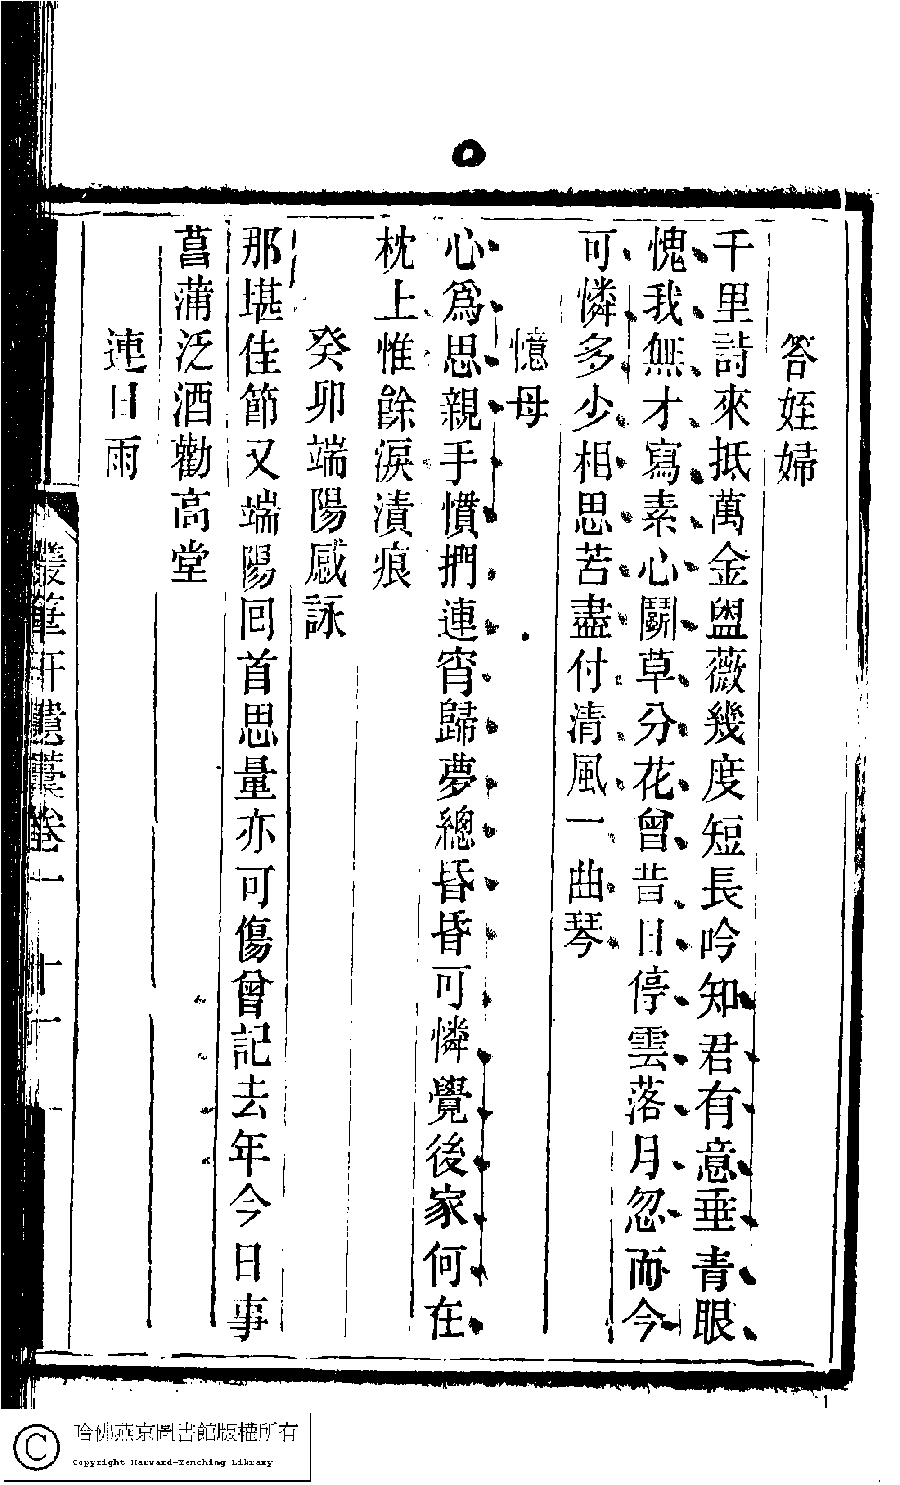 答姪婦
千里詩來抵萬金盥薇幾度短長吟知君有意垂青眼
愧我無才寫素心鬭草分花曾昔日停雲落月忽而今
可憐多少相思苦盡付清風一曲琴
憶母
心爲思親手慣捫連宵歸夢總昏昏可憐覺後家何在
枕上惟餘淚漬痕
癸卯端陽感詠
那堪佳節又端陽回首思量亦可傷曾記去年今日事
菖蒲泛酒勸高堂
連日雨
叢筆軒遺稾卷一 十一
哈佛燕京圖書館版權所有
Copyright Harvard-Yenching Library